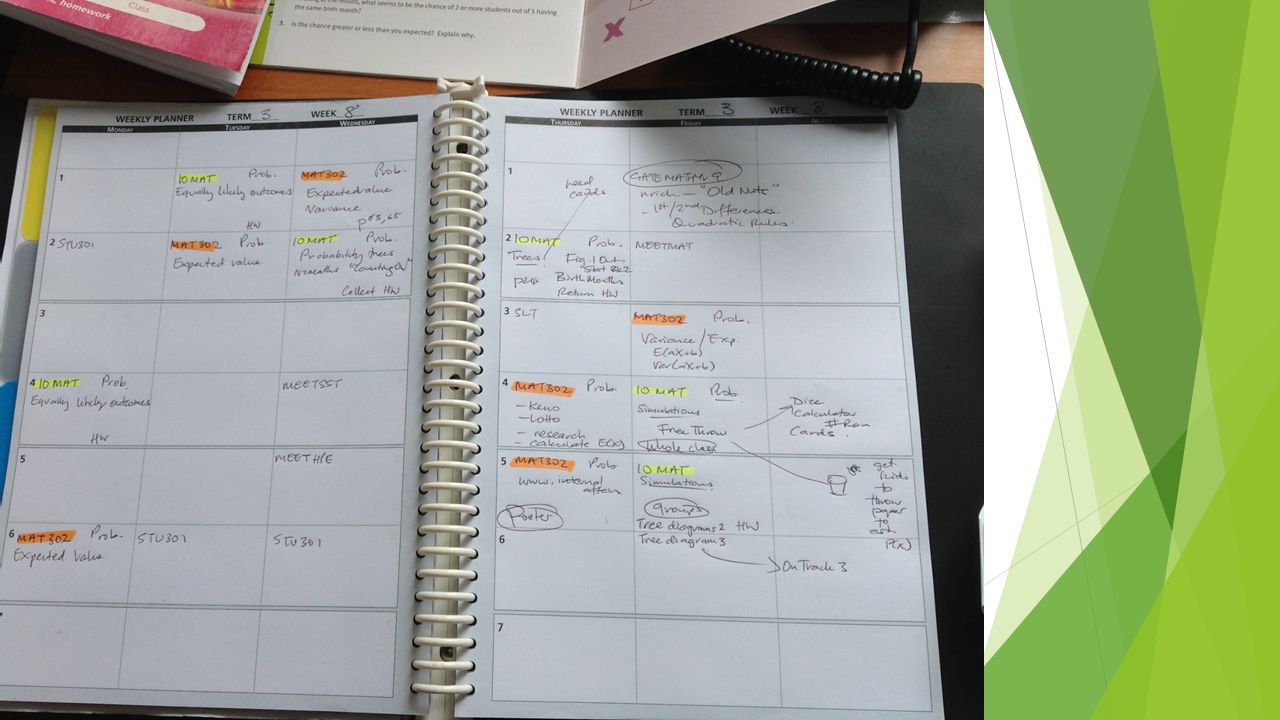 Class
homework
the results, what seems to be the chance of 2 or more students out of 5 having
the same birth month?
3. Is the chance greater or less than you expected? Explain why.
WEEKLY PLANNER TERM 3 WEEK 8
MONDAY TUESDAY WEDNESDAY
1
10 MAT Prob.
Equally likely outcomes
HW
MAT302 Prob.
Expected value
Variance
p63, 65
2 STU301
MAT302 Prob
Expected value
10 MAT Prob.
Probability trees
nzmaths "Counting On"
Collect HW
3
4 10 MAT Prob.
Equally likely outcomes
HW
MEETSST
5
MEETHPE
6 MAT302 Prob.
Expected Value
STU301
STU301
WEEKLY PLANNER TERM 3 WEEK 8
THURSDAY FRIDAY NOTES
1
need
cards
GATE MATH
nrich — "Old Note"
- 1st/2nd Differences
Quadratic Rules.
2 10MAT Prob.
Trees. Fig. 1 Out
Birth Months
Return HW
MEETMAT
3 SLT
MAT302 Prob.
Variance / Exp.
E(aX+b)
Var(aX+b)
4 MAT302 Prob.
- Keno
- Lotto
- research
- calculate E(X)
10 MAT Prob.
Simulations
Free Throw
Whole class
Dice
Calculator
# Ran
Cards.
5 MAT302 Prob
www. internal
affairs
Poster
10 MAT
Simulations.
groups
Tree diagrams 2 HW
Tree diagram 3
get
kids
to
throw
paper
to
P(X)
6
On Track 3
7